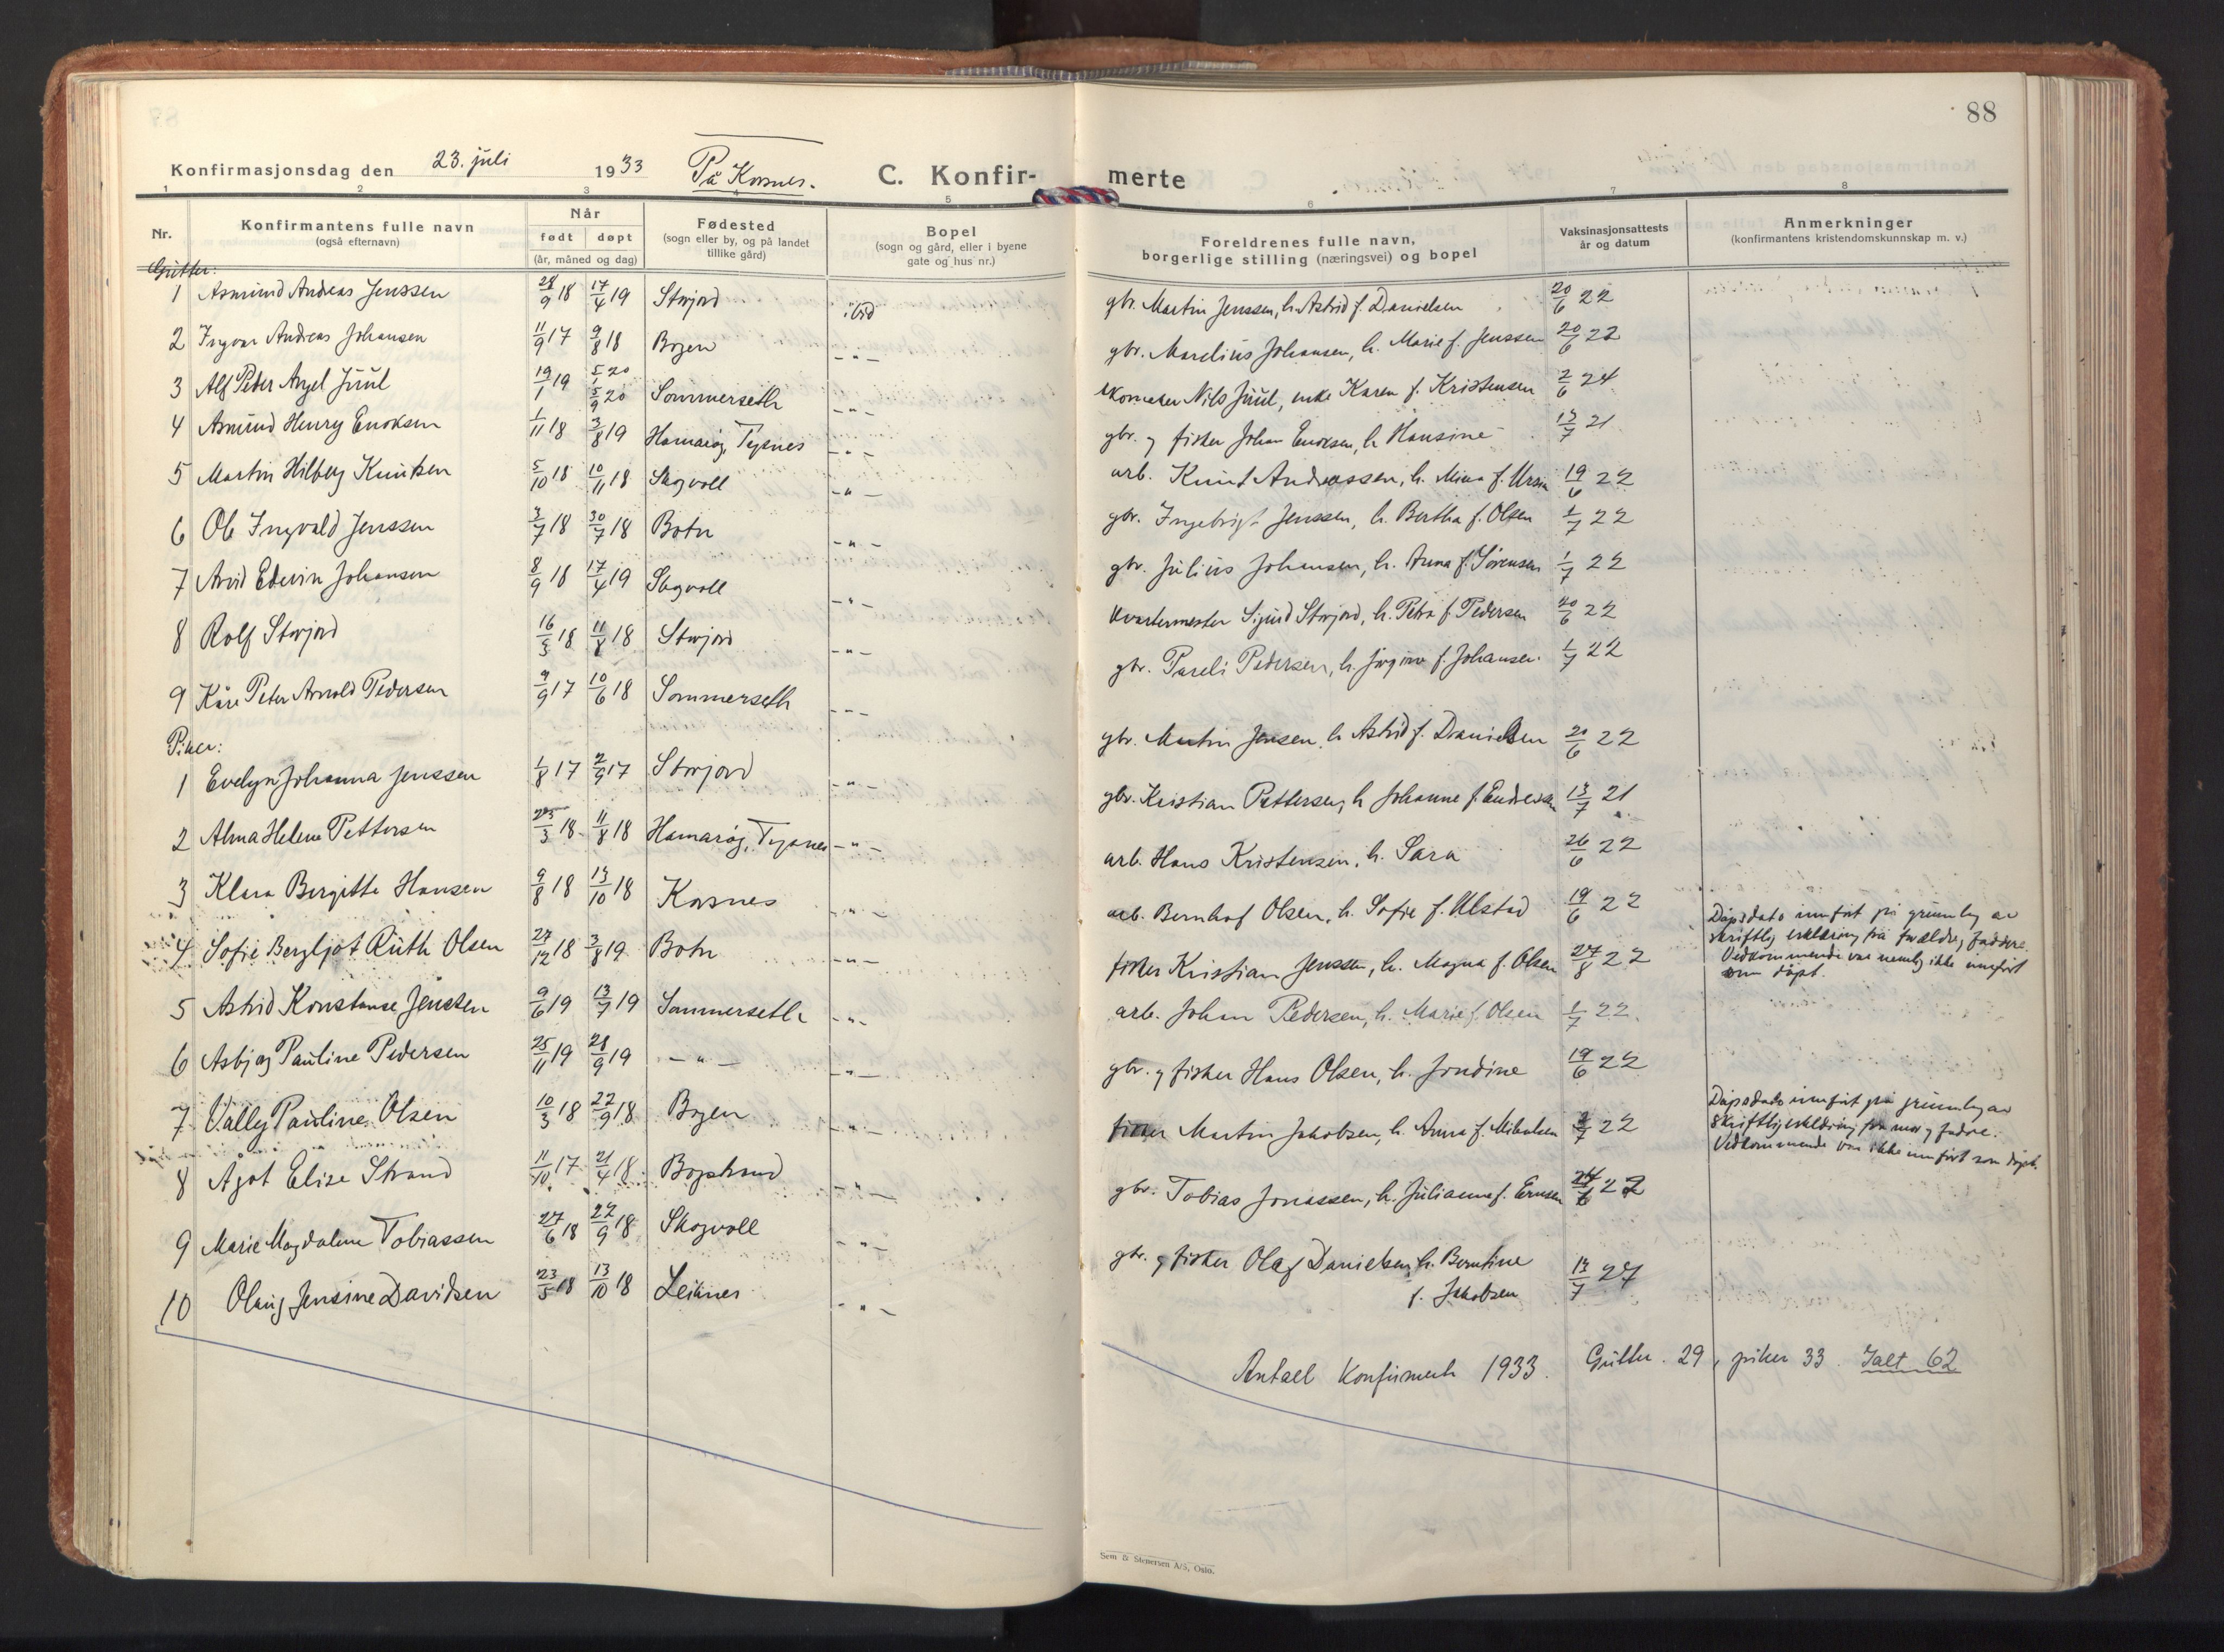 88
Konfirmasjonsdag den 23. juli 1933 På Korsnes. C. Konfir-
merte
1 2 3 4 5 6 7 8
Nr.
Konfirmantens fulle navn
(også efternavn)
Når
født døpt
(år, måned og dag)
Fødested
(sogn eller by, og på landet
tillike gård)
Bopel
(sogn og gård, eller i byene
gate og hus nr.)
Foreldrenes fulle navn,
borgerlige stilling (næringsvei) og bopel
Vaksinasjonsattests
år og datum
Anmerkninger
(konfirmantens kristendomskunnskap m. v.)
Gutter:
1 Asmund Andreas Jenssen 28/9 18 17/4 19 Storjord ibid gbr. Martin Jenssen, h. Astrid f. Danielsen 20/6 22
2 Ingvar Andreas Johansen 11/9 17 9/8 18 Bogen -"- gbr. Marelius Johansen, h. Marie f. Jenssen 20/6 22
3 Alf Peter Angel Juul 19/1 19 5/1 20 5/9 20 Sommerseth -"- skomaker Nils Juul, enke Karen f. Kristensen 2/6 24
4 Asmund Henry Enoksen 1/11 18 3/8 19 Hamarøy, Tysnes -"- gbr. og fisker Johan Enoksen, h. Hansine 13/7 21
5 Martin Hilberg Knutsen 5/10 18 10/11 18 Skogvoll -"- arb. Knut Andreassen, h. Mina f. Ursin 19/6 22
6 Ole Ingvald Jenssen 3/7 18 30/7 18 Botn -"- gbr. Ingebrigt Jenssen, h. Bertha f. Olsen 1/7 22
7 Arvid Edevin Johansen 8/9 18 17/4 19 Skogvoll -"- gbr. Julius Johansen, h. Anna f. Sørensen 1/7 22
8 Rolf Storjord 16/3 18 11/8 18 Storjord -"- Kvartermester Sigurd Storjord, h. Petra f. Pedersen 20/6 22
9 Kåre Peter Arnold Pedersen 9/9 17 10/6 18 Sommerseth -"- gbr. Pareli Pedersen, h. Jørgine f. Johansen. 1/7 22
Piker:
1 Evelyn Johanna Jenssen 1/8 17 2/9 17 Storjord -"- gbr. Martin Jensen, h. Astrid f. Danielsen 20/6 22
2 Alma Helene Pettersen 23/3 18 11/8 18 Hamarøy, Tysnes -"- gbr. Kristian Pettersen, h. Johanne f. Endresen 13/7 21
3 Klara Bergitte Hansen 9/8 18 13/10 18 Korsnes -"- arb. Hans Kristensen, h. Sara 26/6 22
4 Sofie Bergljot Ruth Olsen 27/12 18 3/8 19 Botn -"- arb. Bernhof Olsen, h. Sofie f. Ulstad 19/6 22
Dåpsdato innført på grunnlag av
skriftlig erklæring fra foreldre, faddere.
Vedkommende var nemlig ikke innført
som døpt.
5 Astrid Konstanse Jenssen 9/6 19 13/7 19 Sommerseth -"- fisker Kristian Jenssen, h. Magna f. Olsen 27/8 22
6 Asbjørg Pauline Pedersen 25/11 19 28/9 19 -"- -"- arb. Johan Pedersen, h. Marie f. Olsen 1/7 22.
7 Vally Pauline Olsen 10/3 18 22/9 18 Bogen -"- gbr. og fisker Hans Olsen, h. Jondine 19/6 22
8 Ågot Elise Strand 11/10 17 21/4 18 Bogstrand -"- fisker Martin Jakobsen, h. Anna f. Mikalsen 2/7 22
Dåpsdato innført på grunnlag av
skriftlig erklæring fra mor og faddere.
Vedkommende var ikke innført som døpt.
9 Marie Magdalene Tobiassen 27/6 18 22/9 18 Skogvoll -"- gbr. Tobias Jonassen, h. Julianne f. Ernsen 24/6 22
10 Olaug Jensine Davidsen 23/5 18 13/10 18 Leiknes -"- gbr. og fisker Olaf Danielsen, h. Berntine
f. Jakobsen 13/7 27
Antall Konfirmerte 1933. Gutter. 29, piker 33. Ialt 62
Sem & Stenersen A/S, Oslo.